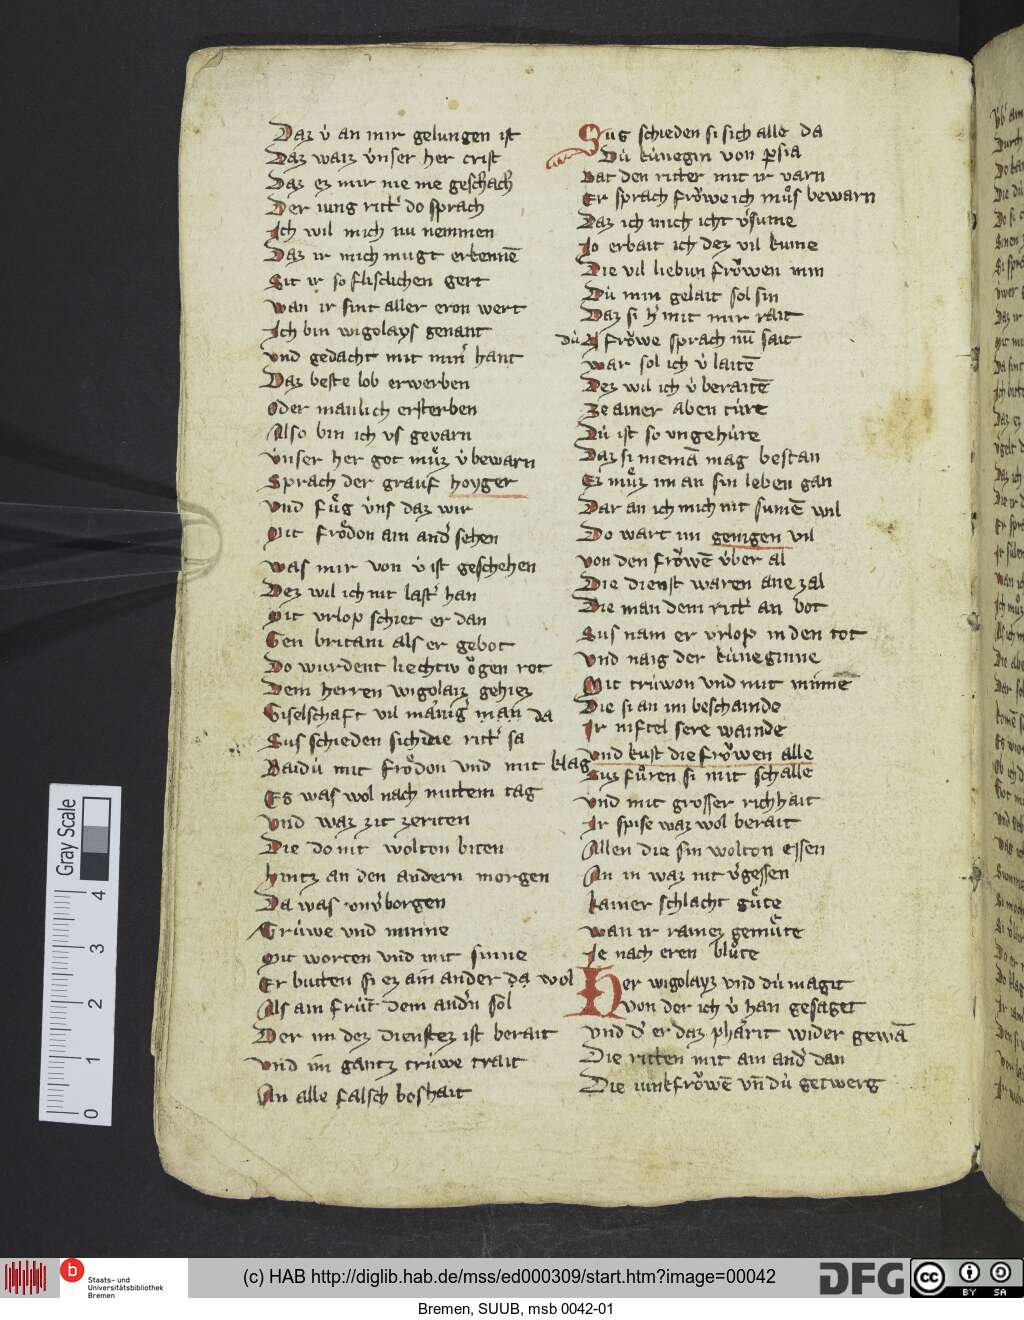 Daz v̍ an mir gelungen ist
Daz waiz v̍nser her crist
Daz ez mir nie me geschach
Der iung ritt̍ do sprach
Ich wil mich nu nemmen
Daz ir mich mugt erkennē
Sit ir so fliſclichen gert
wan ir sint aller eron wert
Ich bin wigolays genant
vnd gedacht mit min̍ hant
Daz beste lob erwerben
Oder manlich ersterben
Also bin ich vs gevarn
v̍nser her got mu̍z v̍ bewarn
Sprach der grauf hoyger
vnd fu̍g v̍ns daz wir
Mit frödon ain and̍ sehen
was mir von v̍ ist geschehen
Dez wil ich nit last̍ han
Mit vrlop schiet er dan
Gen britani als er gebot
Do wurdent liechtiv ögen rot
Dem herren wigolaiz gehiez
Giselschaft vil mānig man da
Sus schieden sich die ritt̍ sa
Baidu̍ mit frödon vnd mit klag
Es was wol nach mittem tag
vnd waz zit zeriten
Die do nit wolton biten
hintz an den andern morgen
Da was onv̍borgen
Tru̍we vnd minne
Mit worten vnd mit sinne
Er butten si ez ain ander da wol
Als ain fru̍t dem and̍n sol
Der im dez dienstez ist berait
vnd im gantz tru̍we trait
An alle falsch boshait
Sus schieden si sich alle da
Du̍ ku̍negin von p̱sia
Bat den ritter mit ir varn
Er sprach fröwe ich mu̍s bewarn
Daz ich mich icht v̍sume
Jo erbait ich dez vil kume
Die vil liebun fröwen min
Du̍ min gelait sol sin
Daz si h̍ mit mir rait
du̍ fröwe sprach nū sait
war sol ich v̍ laitē
Dez wil ich v̍ beraitē
ze ainer aben tu̍re
Du̍ ist so vngehu̍re
Daz si niemā mag bestan
Ez mu̍z im an sin leben gan
Dar an ich mich nit sumē wil
Do wart im genigen vil
von den fröwē v̍ber al
Die dienst waren ane zal
Die man dem ritt̍ an bot
Sus nam er vrlop in den tot
vnd naig der ku̍neginne
Mit tru̍won vnd mit minne
Die si an im beschainde
Ir niftel sere wainde
vnd kust die fröwen alle
Suz fu̍ren si mit schalle
vnd mit grosser richhait
Ir spise waz wol berait
Allen die sin wolton essen
An in waz nit v̍gessen
kainer schlacht gu̍te
wan ir rainez gemu̍te
Je nach eren blu̍te
Her wigolayz vnd du̍ magit
von der ich v̍ han gesaget
vnd d̍ er daz phärit wider gewā
Die ritten mit ain and̍ dan
Die iunkfröwē vn̄ du̍ getwerg
Gray Scale
0 1 2 3 4
b
Staats- und
Universitätsbibliothek
Bremen
(c) HAB http://diglib.hab.de/mss/ed000309/start.htm?image=00042
DFG
cc BY SA
Bremen, SUUB, msb 0042-01